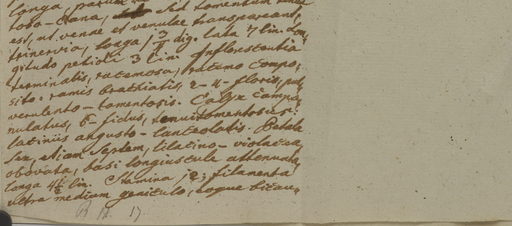 longa,
lobo-
est, ut venae et venulae transpareant,
trinervia, longa 1 3/ dig. lata 7 lin. lon-
gitudo petioli 3 lin. Inflorescentia
terminalis, racemosa; racemo compo-
sito: ramis brachiatis, 2-4-floris, pul-
verulento-tomentosis. Calyx campa-
nulatus, 6-fidus, tenuitomentosus:
laciniis angusto-lanceolatis. Petala
sex, etiam septem, lilacino-violacea,
obovata, basi longiuscule attenuata,
longa 4½ lin. Stamina 12; filamenta
ultra medium geniculo,
B. 12. 17